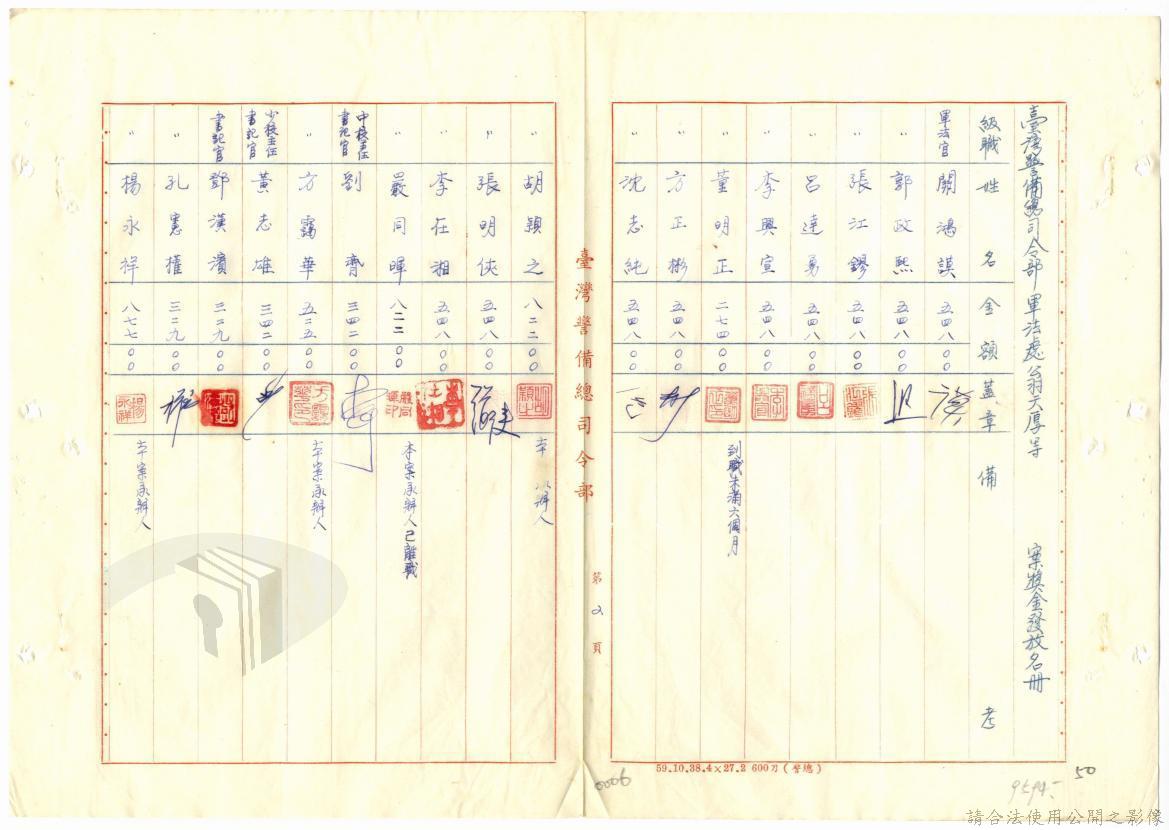 臺灣警備總司令部軍法處翁天厚等 案獎金發放名冊
級職 姓名 金額 蓋章 備考
軍法官 關鴻謨 五四八〇〇
〃 郭政熙 五四八〇〇
〃 張江鏐 五四八〇〇
〃 呂達勇 五四八〇〇
〃 李興宣 五四八〇〇
〃 董明正 二七四〇〇 到職未滿六個月
〃 方正彬 五四八〇〇
〃 沈志純 五四八〇〇
臺灣警備總司令部
第2頁
〃 胡穎之 八二二〇〇 本 承辦人
〃 張明俠 五四八〇〇
〃 李在湘 五四八〇〇
〃 嚴同暉 八二二〇〇 本案承辦人已離職
中校主任書記官 劉齊 三四二〇〇
〃 方靄華 五二五〇〇 本案承辦人
少校主任書記官 黃志雄 三四二〇〇
書記官 鄧漢濱 三二九〇〇
〃 孔憲權 三二九〇〇
〃 楊永祥 八七七〇〇 本案承辦人
59.10.38.4×27.2 600刀(警總)
0006
9594.-
50
請合法使用公開之影像